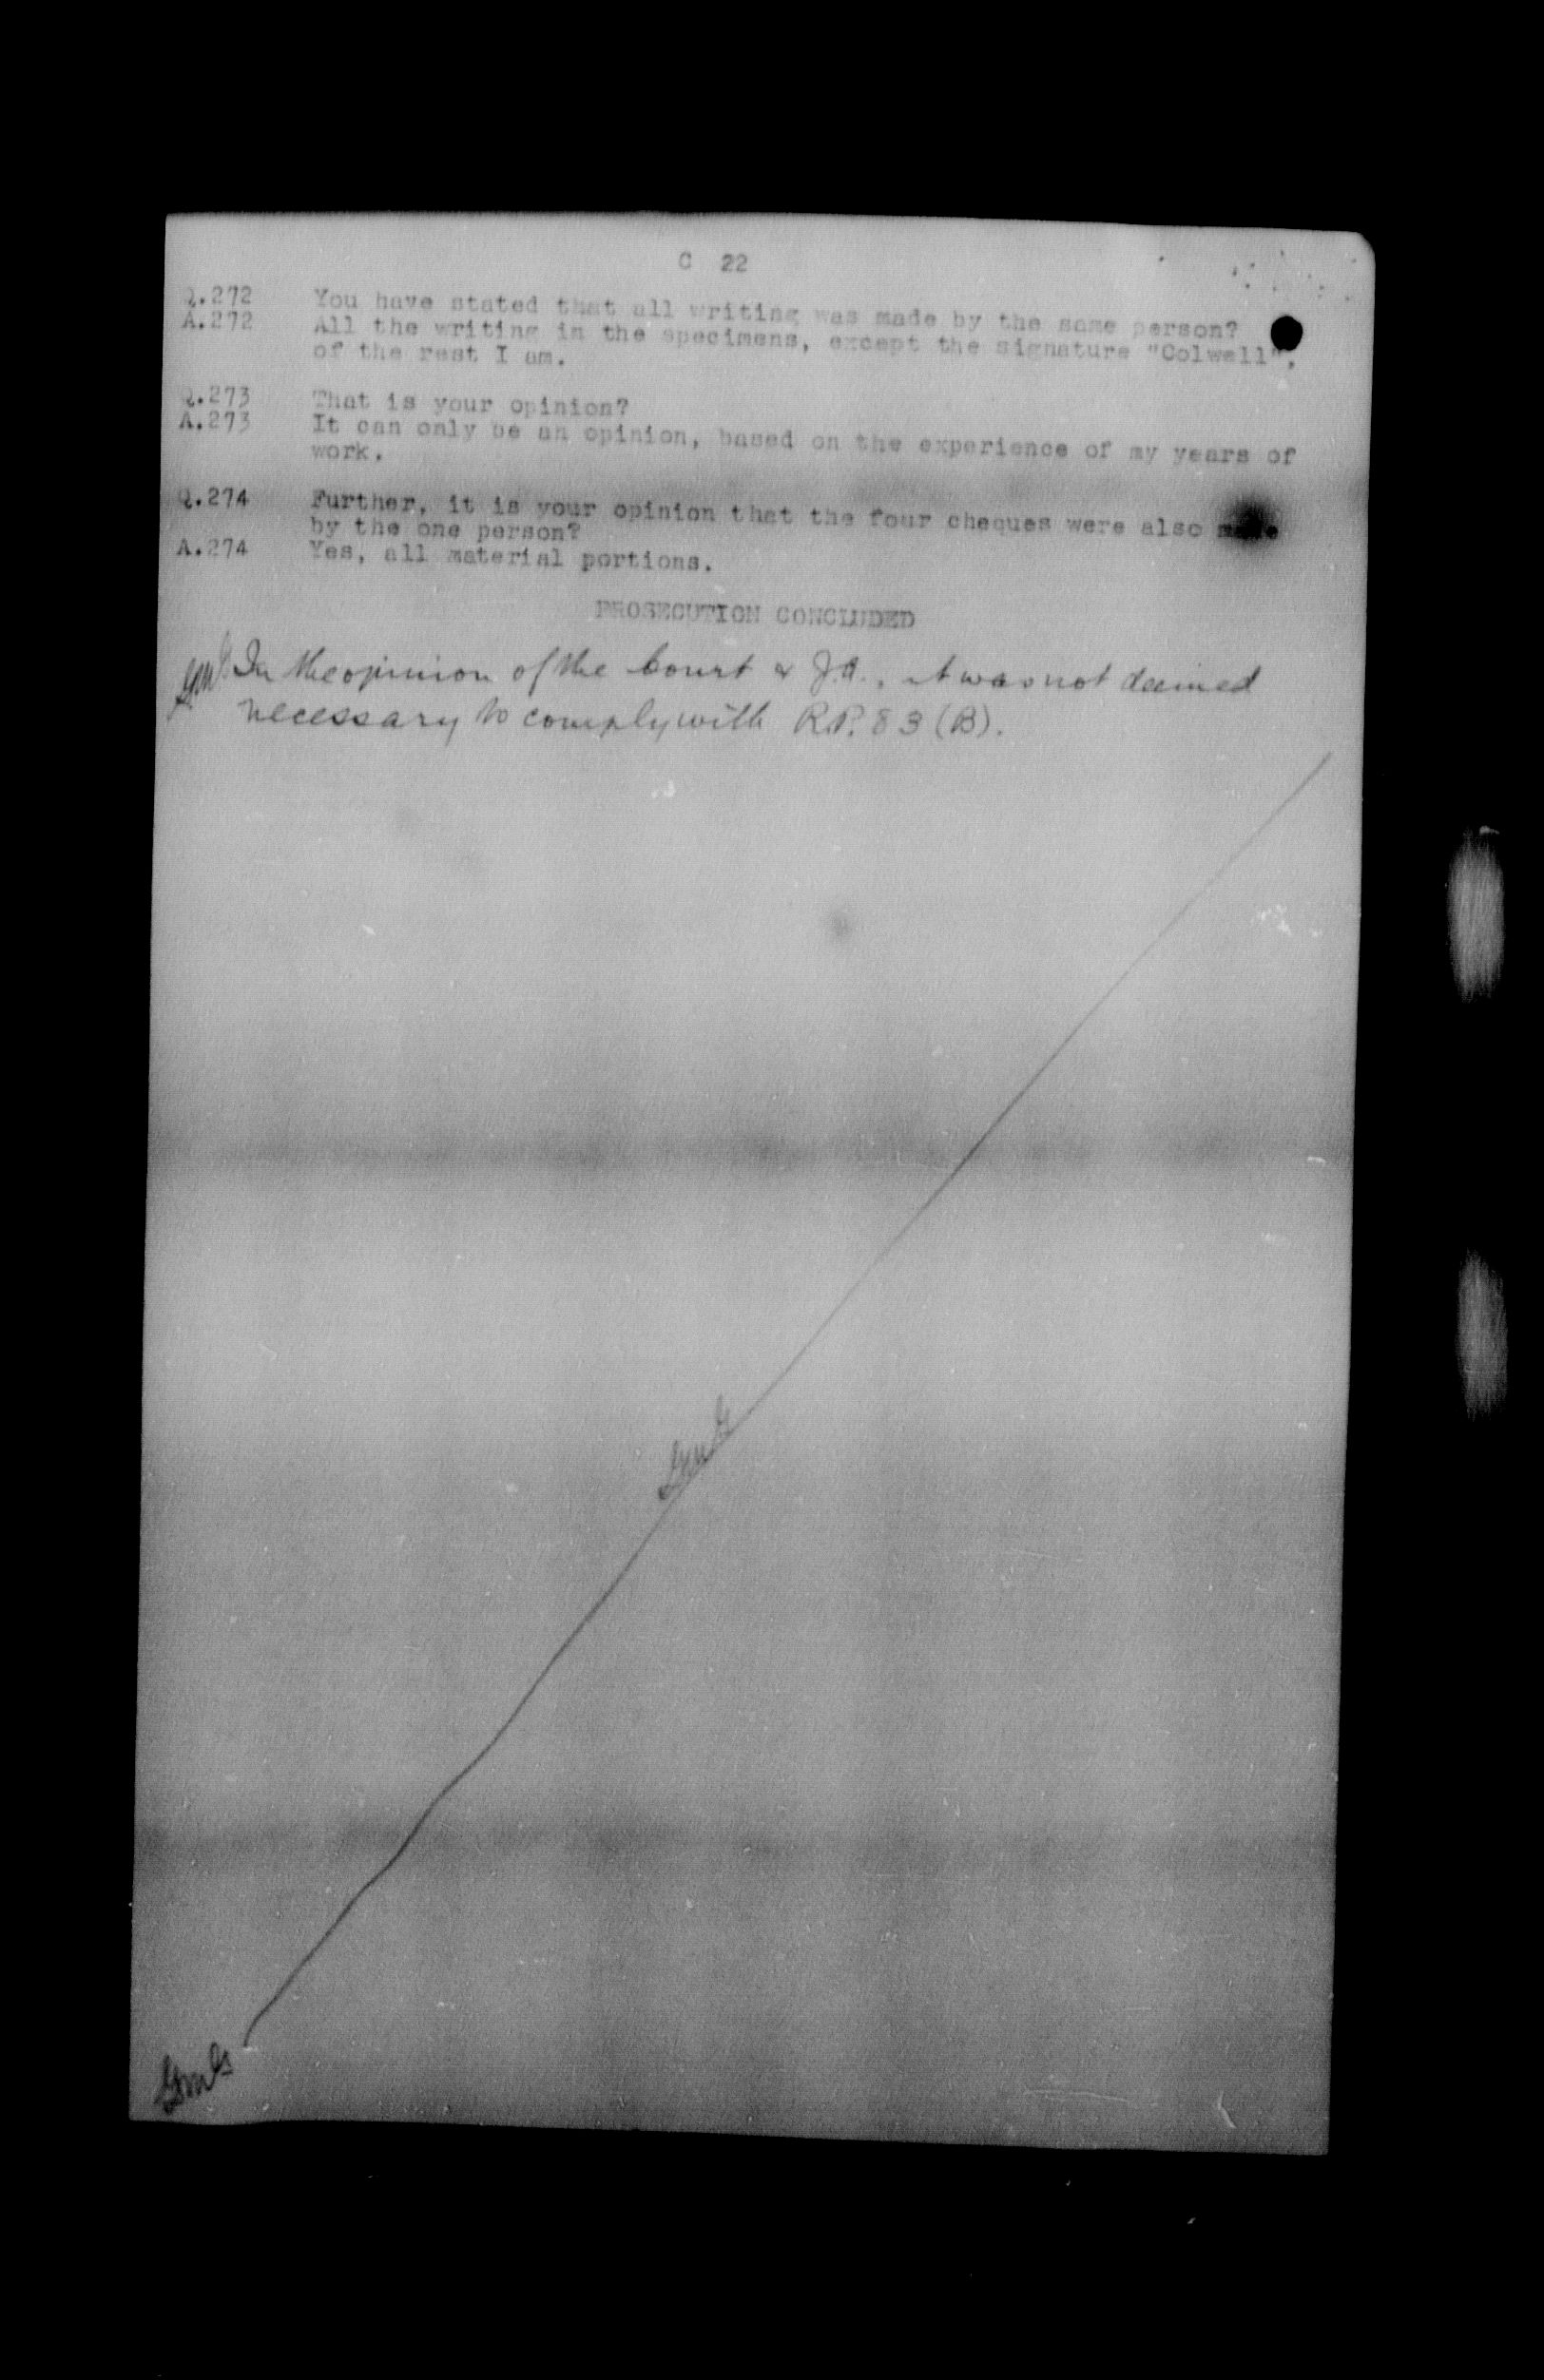 C 22
Q.272 You have stated that all writing was made by the same person?
A.272 All the writing in the specimens, except the signature "Colwell",
of the rest I am.
Q.273 That is your opinion?
A.273 It can only be an opinion, based on the experience of my years of
work.
Q.274 Further, it is your opinion that the four cheques were also made
by the one person?
A.274 Yes, all material portions.
PROSECUTION CONCLUDED
In the opinion of the Court & J.A., it was not deemed
necessary to comply with R.P. 83 (B).